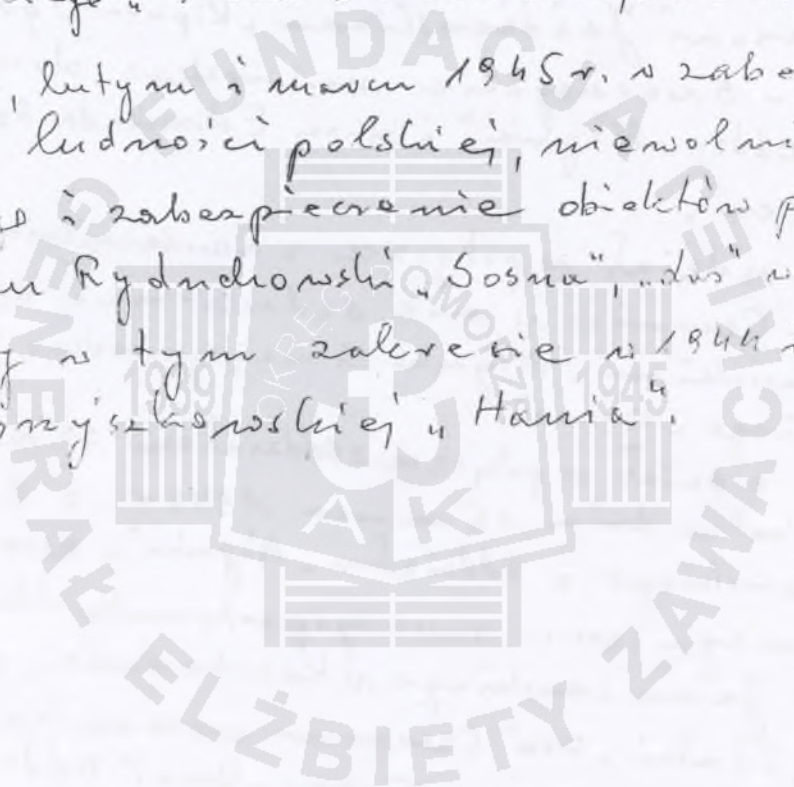 , lutym i marcu 1945 r. w zabe
ludności polskiej, niewolni
i zabezpieczenie obiektów p
Ryduchowski „Sosna”, „
w tym zakresie w 1944
„Hania”.
FUNDACJA
GENERAŁ ELŻBIETY ZAWACKIEJ
OKRĘG POMORZE
1939
1945
AK